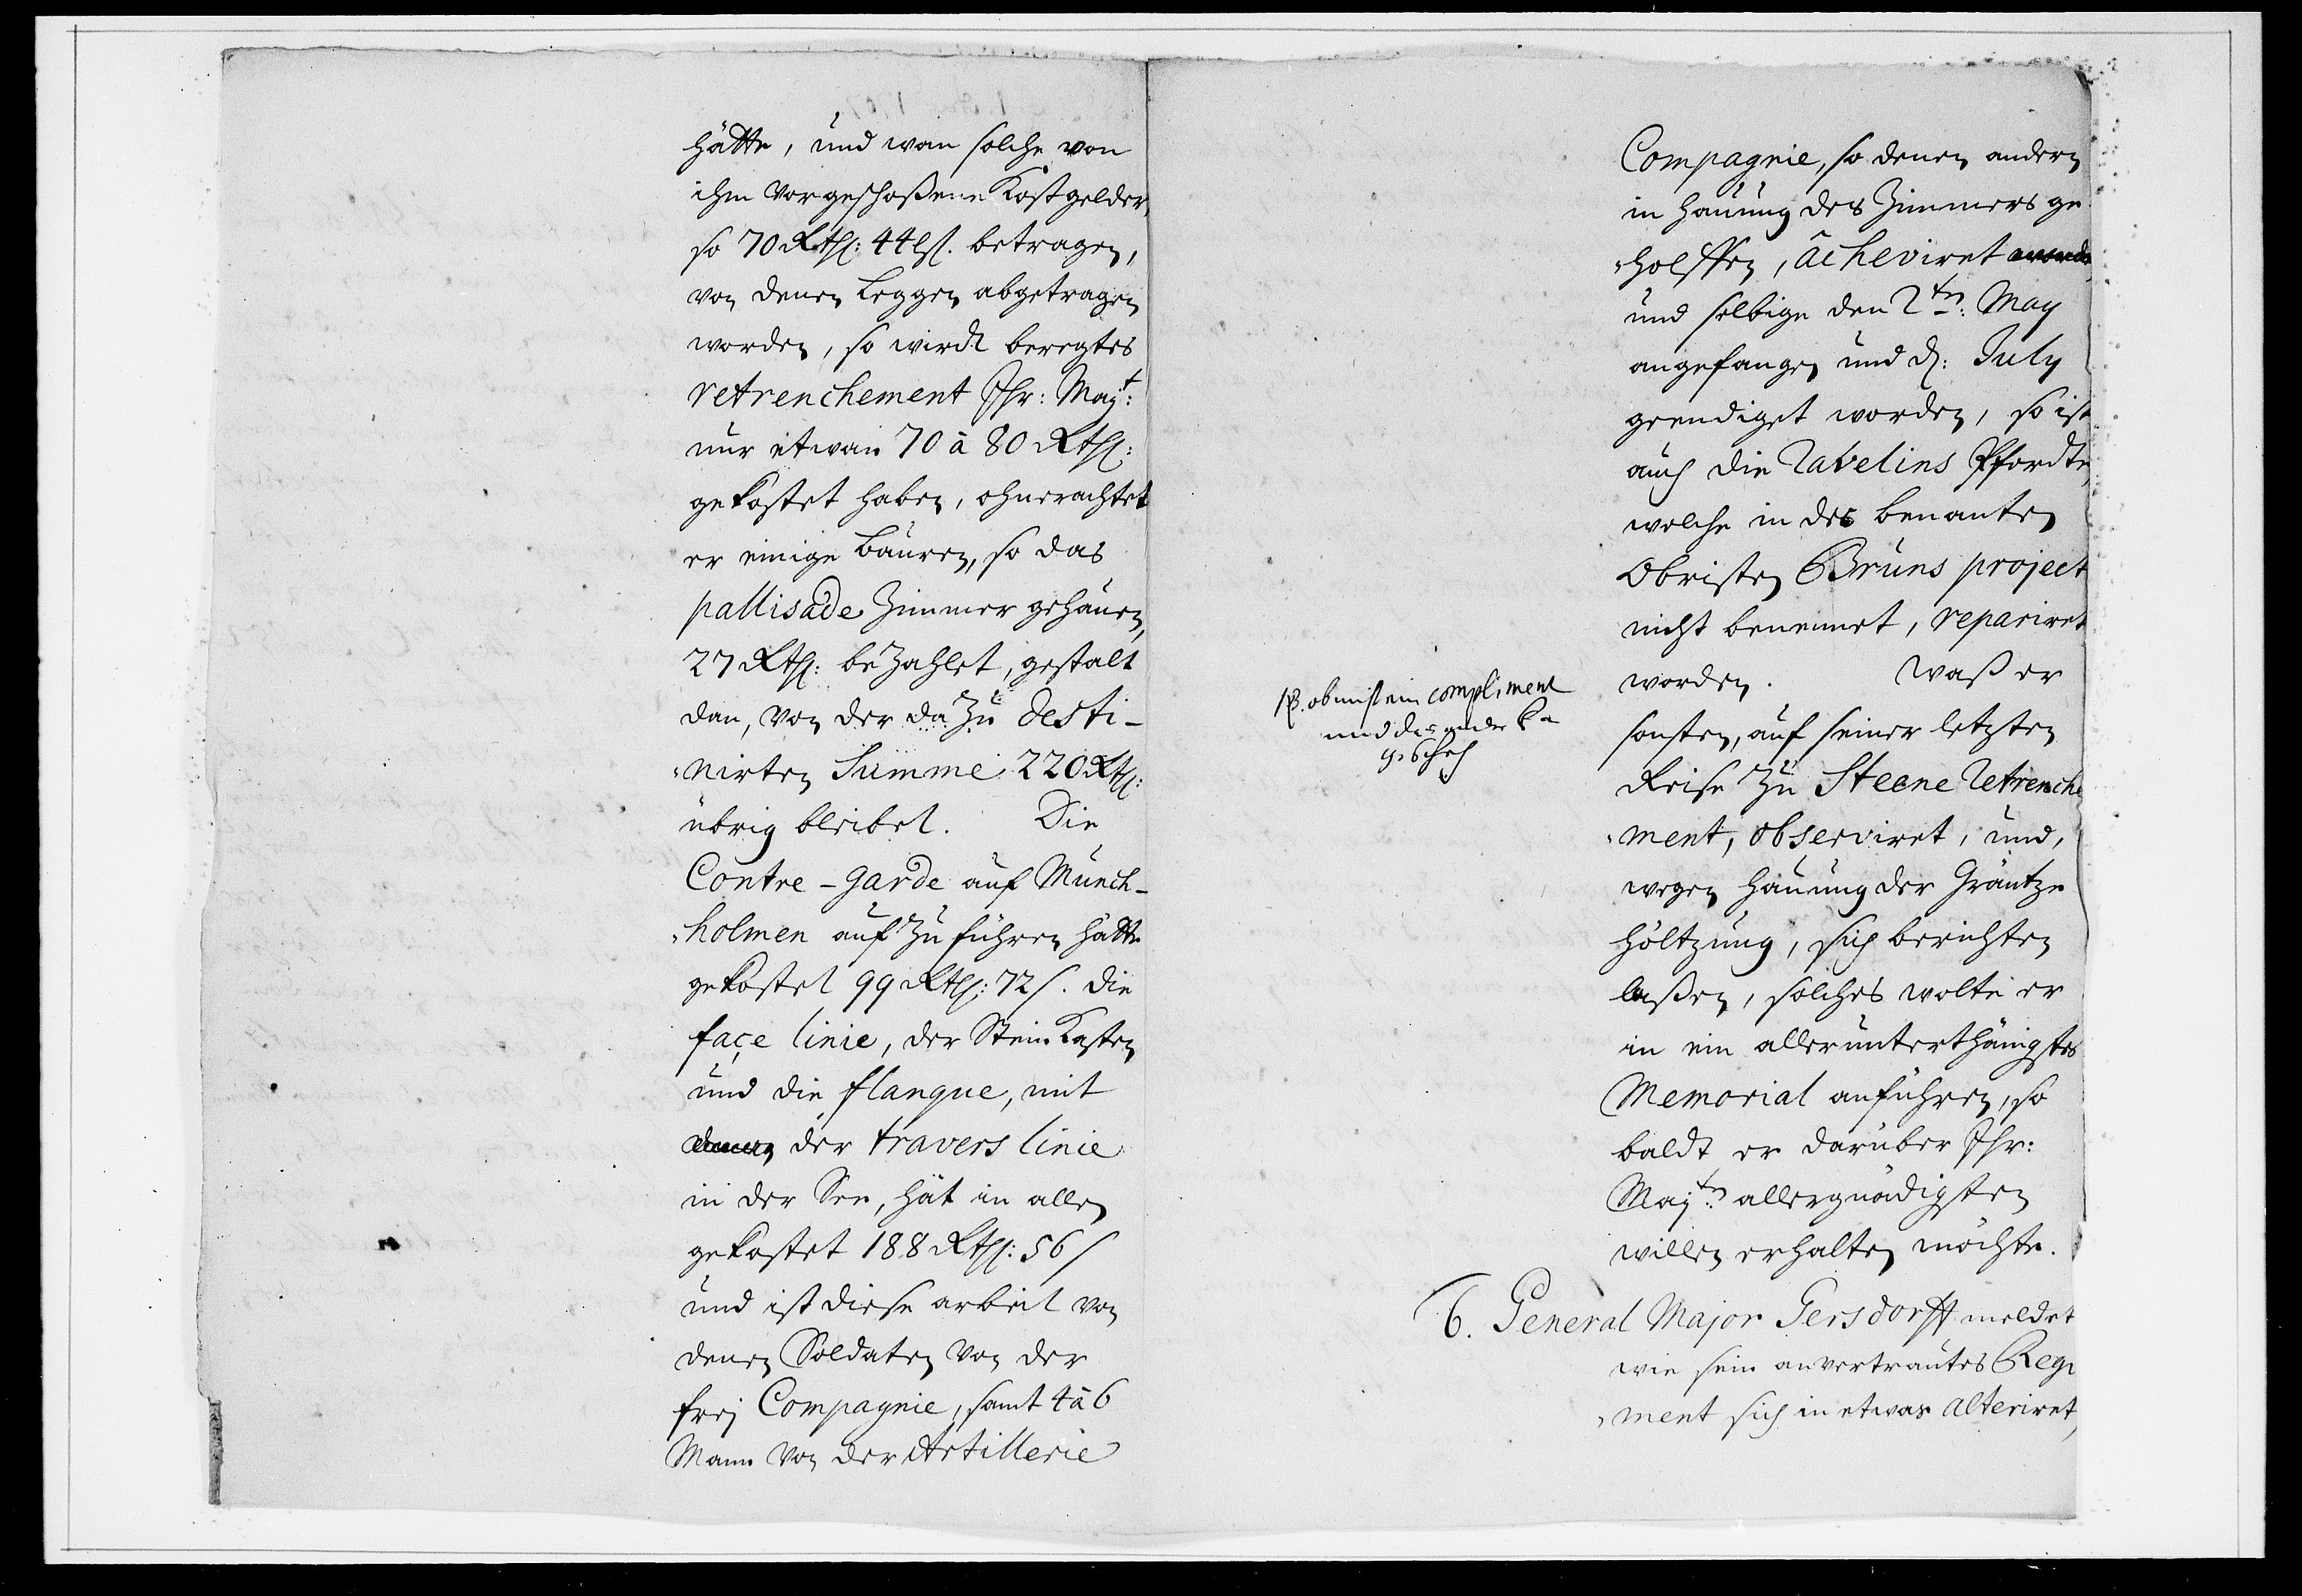 hätte, und wan solche von
ihm vorgeschoßene Kostgelder,
so 70 Rthl: 44 ls. betragen,
von denen Leggen abgetragen
worden, so wirdt beregtes
retrenchement Ihr: Mayt:
nur etwan 70 â 80 Rthl:
gekostet haben, ohnerachtet
er einige bauren, so das
pallisade Zimmer gehauen,
27 Rthl: bezahlet, gestalt
dan, von der da zu desti-
nirten Summe 220 Rthl:
übrig bleibet. Die
Contre-garde auf Munch-
holmen auf zu führen hatte
gekostet 99 Rthl: 72 s. die
façe linie, der Stein Kasten
und die flanque, mit
der travers linie
in der See, hat in allen
gekostet 188 Rthl: 56 s
und ist diese arbeit von
denen Soldaten von der
frej Compagnie, samt 4 â 6
Mann von der Artillerie
Compagnie, so denen andern
in hauung des Zimmers ge-
holffen, âcheviret worden
und selbige den 2ten: May
angefangen und d: July
geendiget worden, so ist
auch die Ravelins Pfordte,
welche in des benanten
Obristen Bruns project
nicht benennet, repariret
worden. Waß er
sonsten, auf seiner letzten
Reise zu Steene Retrenche
ment, observiret, und,
wegen hauung der Gräntze
höltzung, sich berichten
laßen, solches wolte er
in ein allerunterthänigstes
Memorial anführen, so
baldt er darüber Ihr:
Maytn: allergnädigsten
willen erhalten möchte.
NB. ob nicht ein compliment
und das ander
6. General Major Gersdorff meldet
wie sein anvertrautes Regi
ment sich in etwas alteriret,